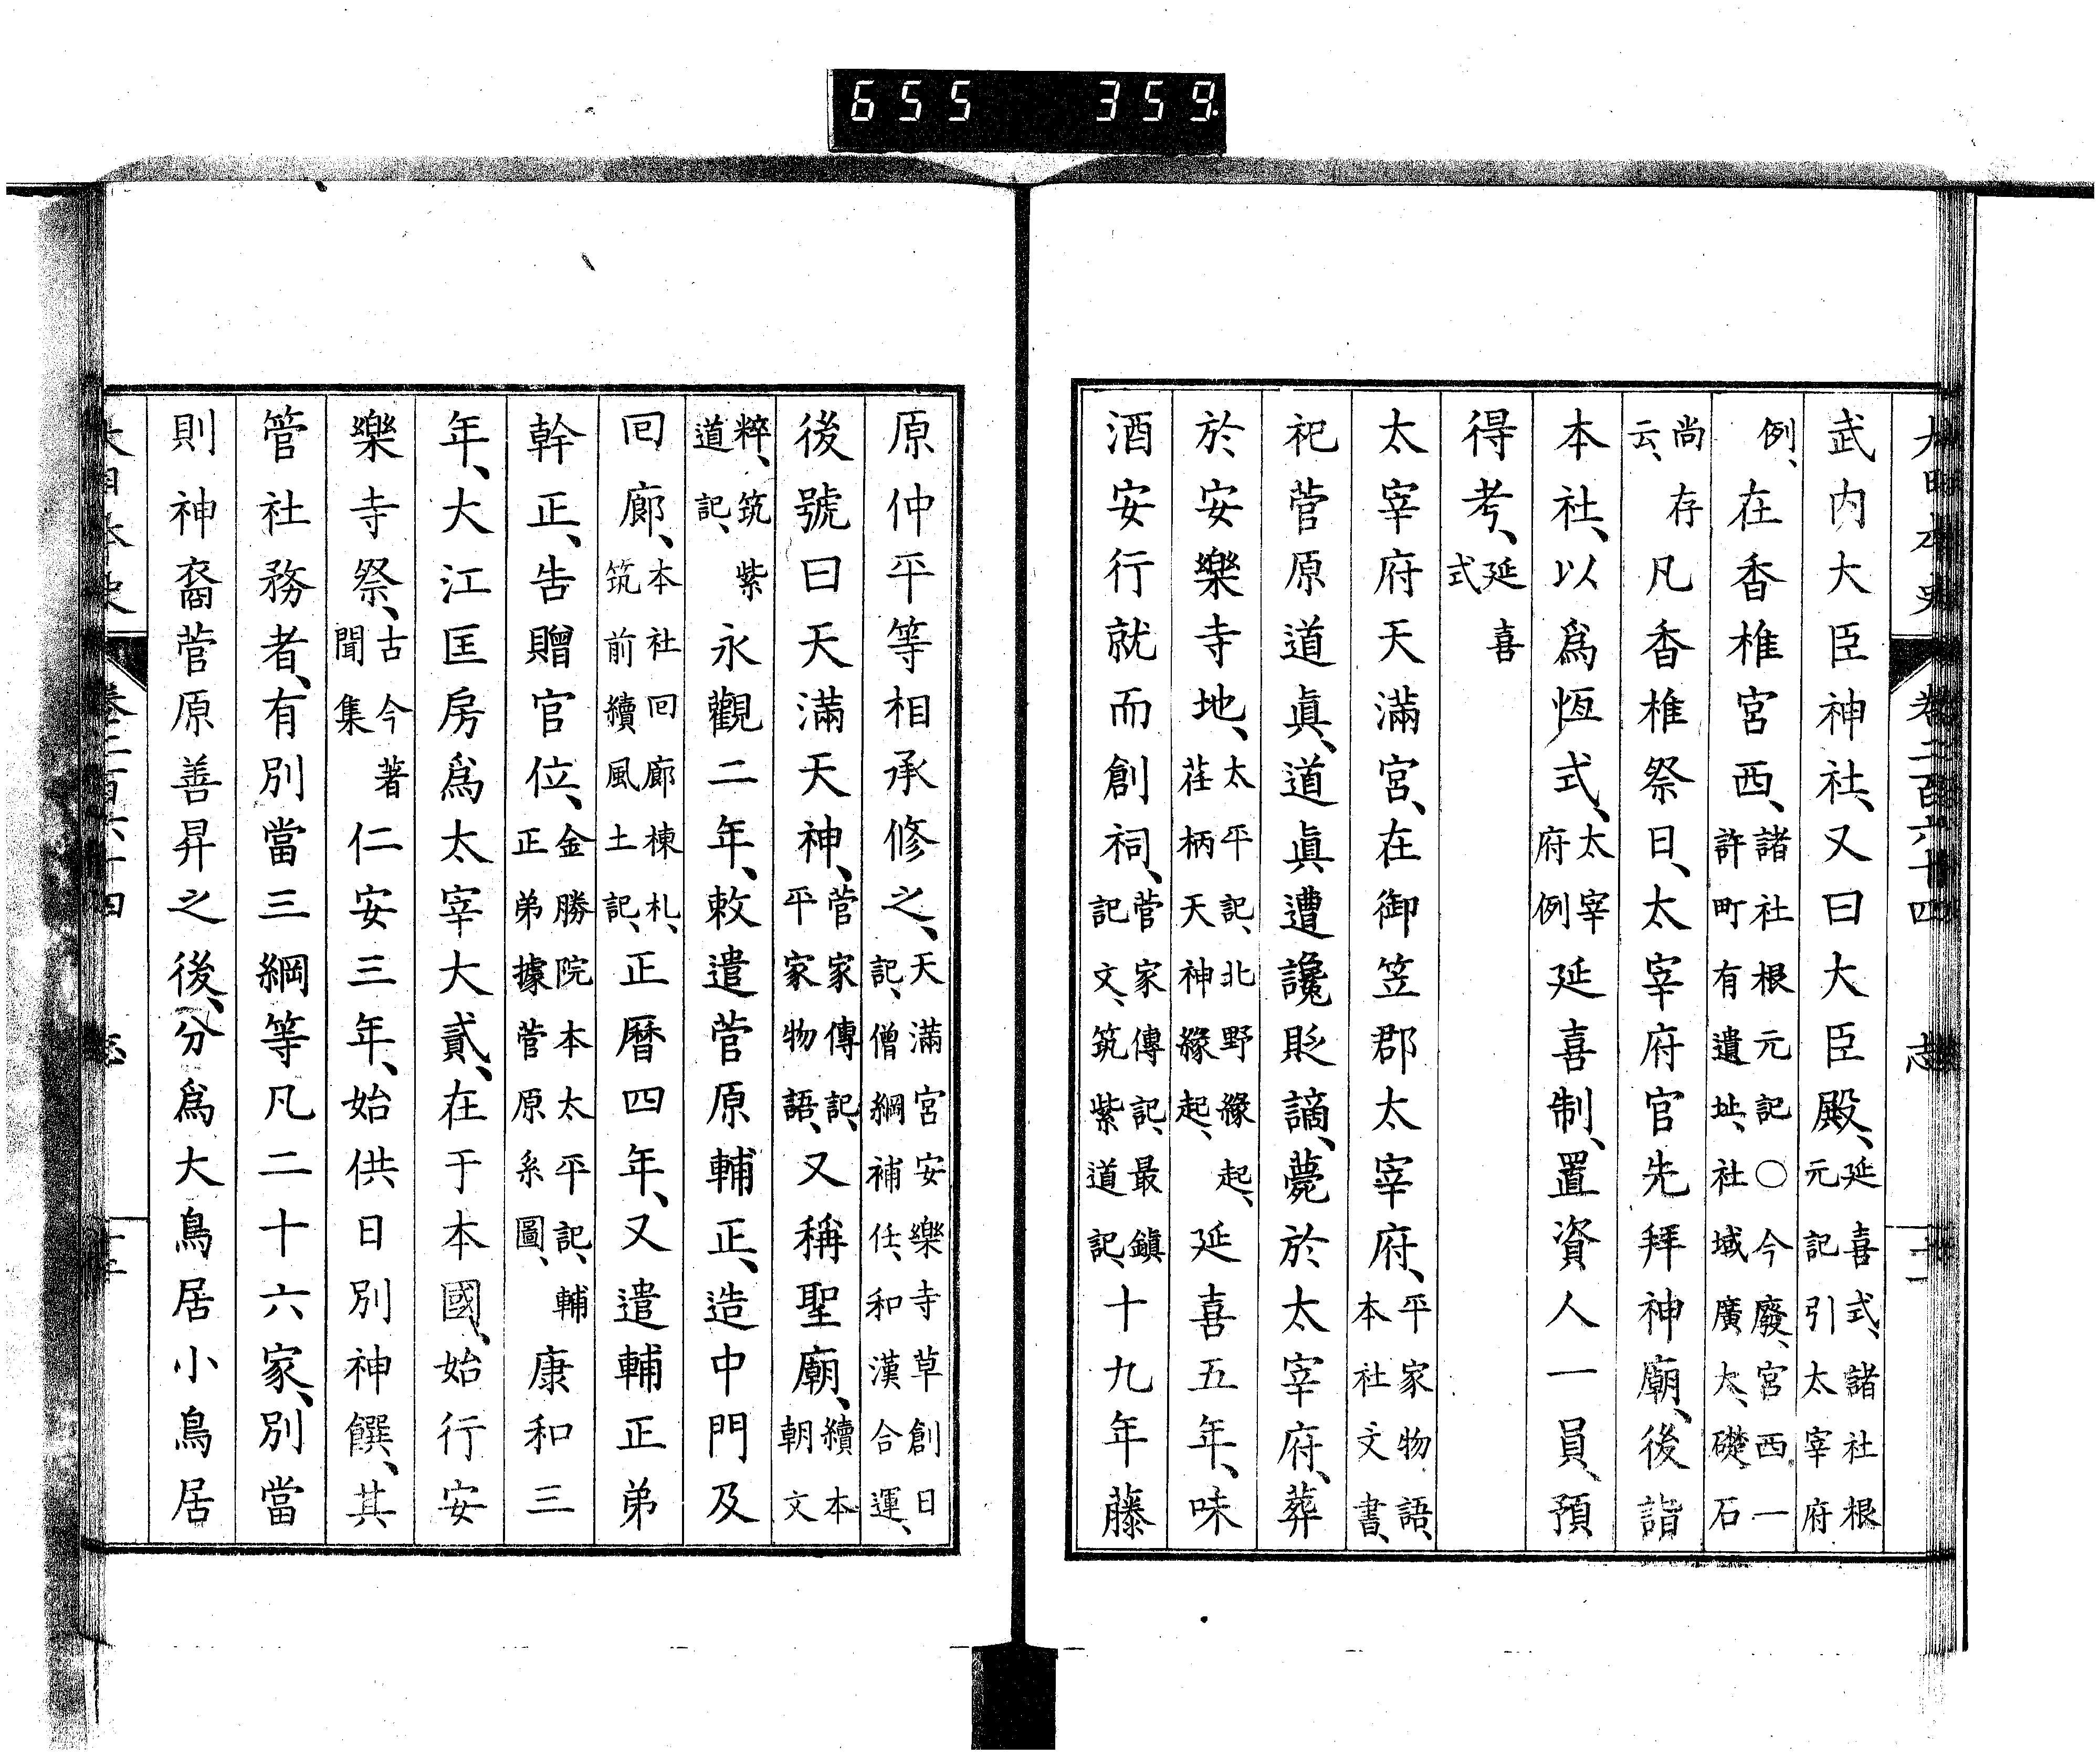 655 359
大日本史 卷二百六十四 志
武内大臣神社、又曰大臣殿、延喜式、諸社根元記引太宰府
例、在香椎宮西、諸社根元記〇今廢、宮西一許町有遺址、社域廣大、礎石
尚存云、凡香椎祭日、太宰府官先拜神廟、後詣
本社、以爲恆式、太宰府例延喜制、置資人一員、預
得考、延喜式
太宰府天滿宮、在御笠郡太宰府、平家物語、本社文書、
祀菅原道眞、道眞遭讒貶謫、薨於太宰府、葬
於安樂寺地、太平記、北野緣起、荏柄天神緣起、延喜五年、味
酒安行就而創祠、菅家傳記、最鎭記文、筑紫道記、十九年藤
原仲平等相承修之、天滿宮安樂寺草創日記、僧綱補任、和漢合運、
後號曰天滿天神、菅家傳記、平家物語、又稱聖廟、續本朝文
粹、筑紫道記、永觀二年、敕遣菅原輔正、造中門及
回廊、本社回廊棟札、筑前續風土記、正曆四年、又遣輔正弟
幹正、告贈官位、金勝院本太平記、輔正弟據菅原系圖、康和三
年、大江匡房爲太宰大貳、在于本國、始行安
樂寺祭、古今著聞集仁安三年、始供日別神饌、其
管社務者、有別當三綱等凡二十六家、別當
則神裔菅原善昇之後、分爲大鳥居小鳥居
大日本史 卷二百六十四 志